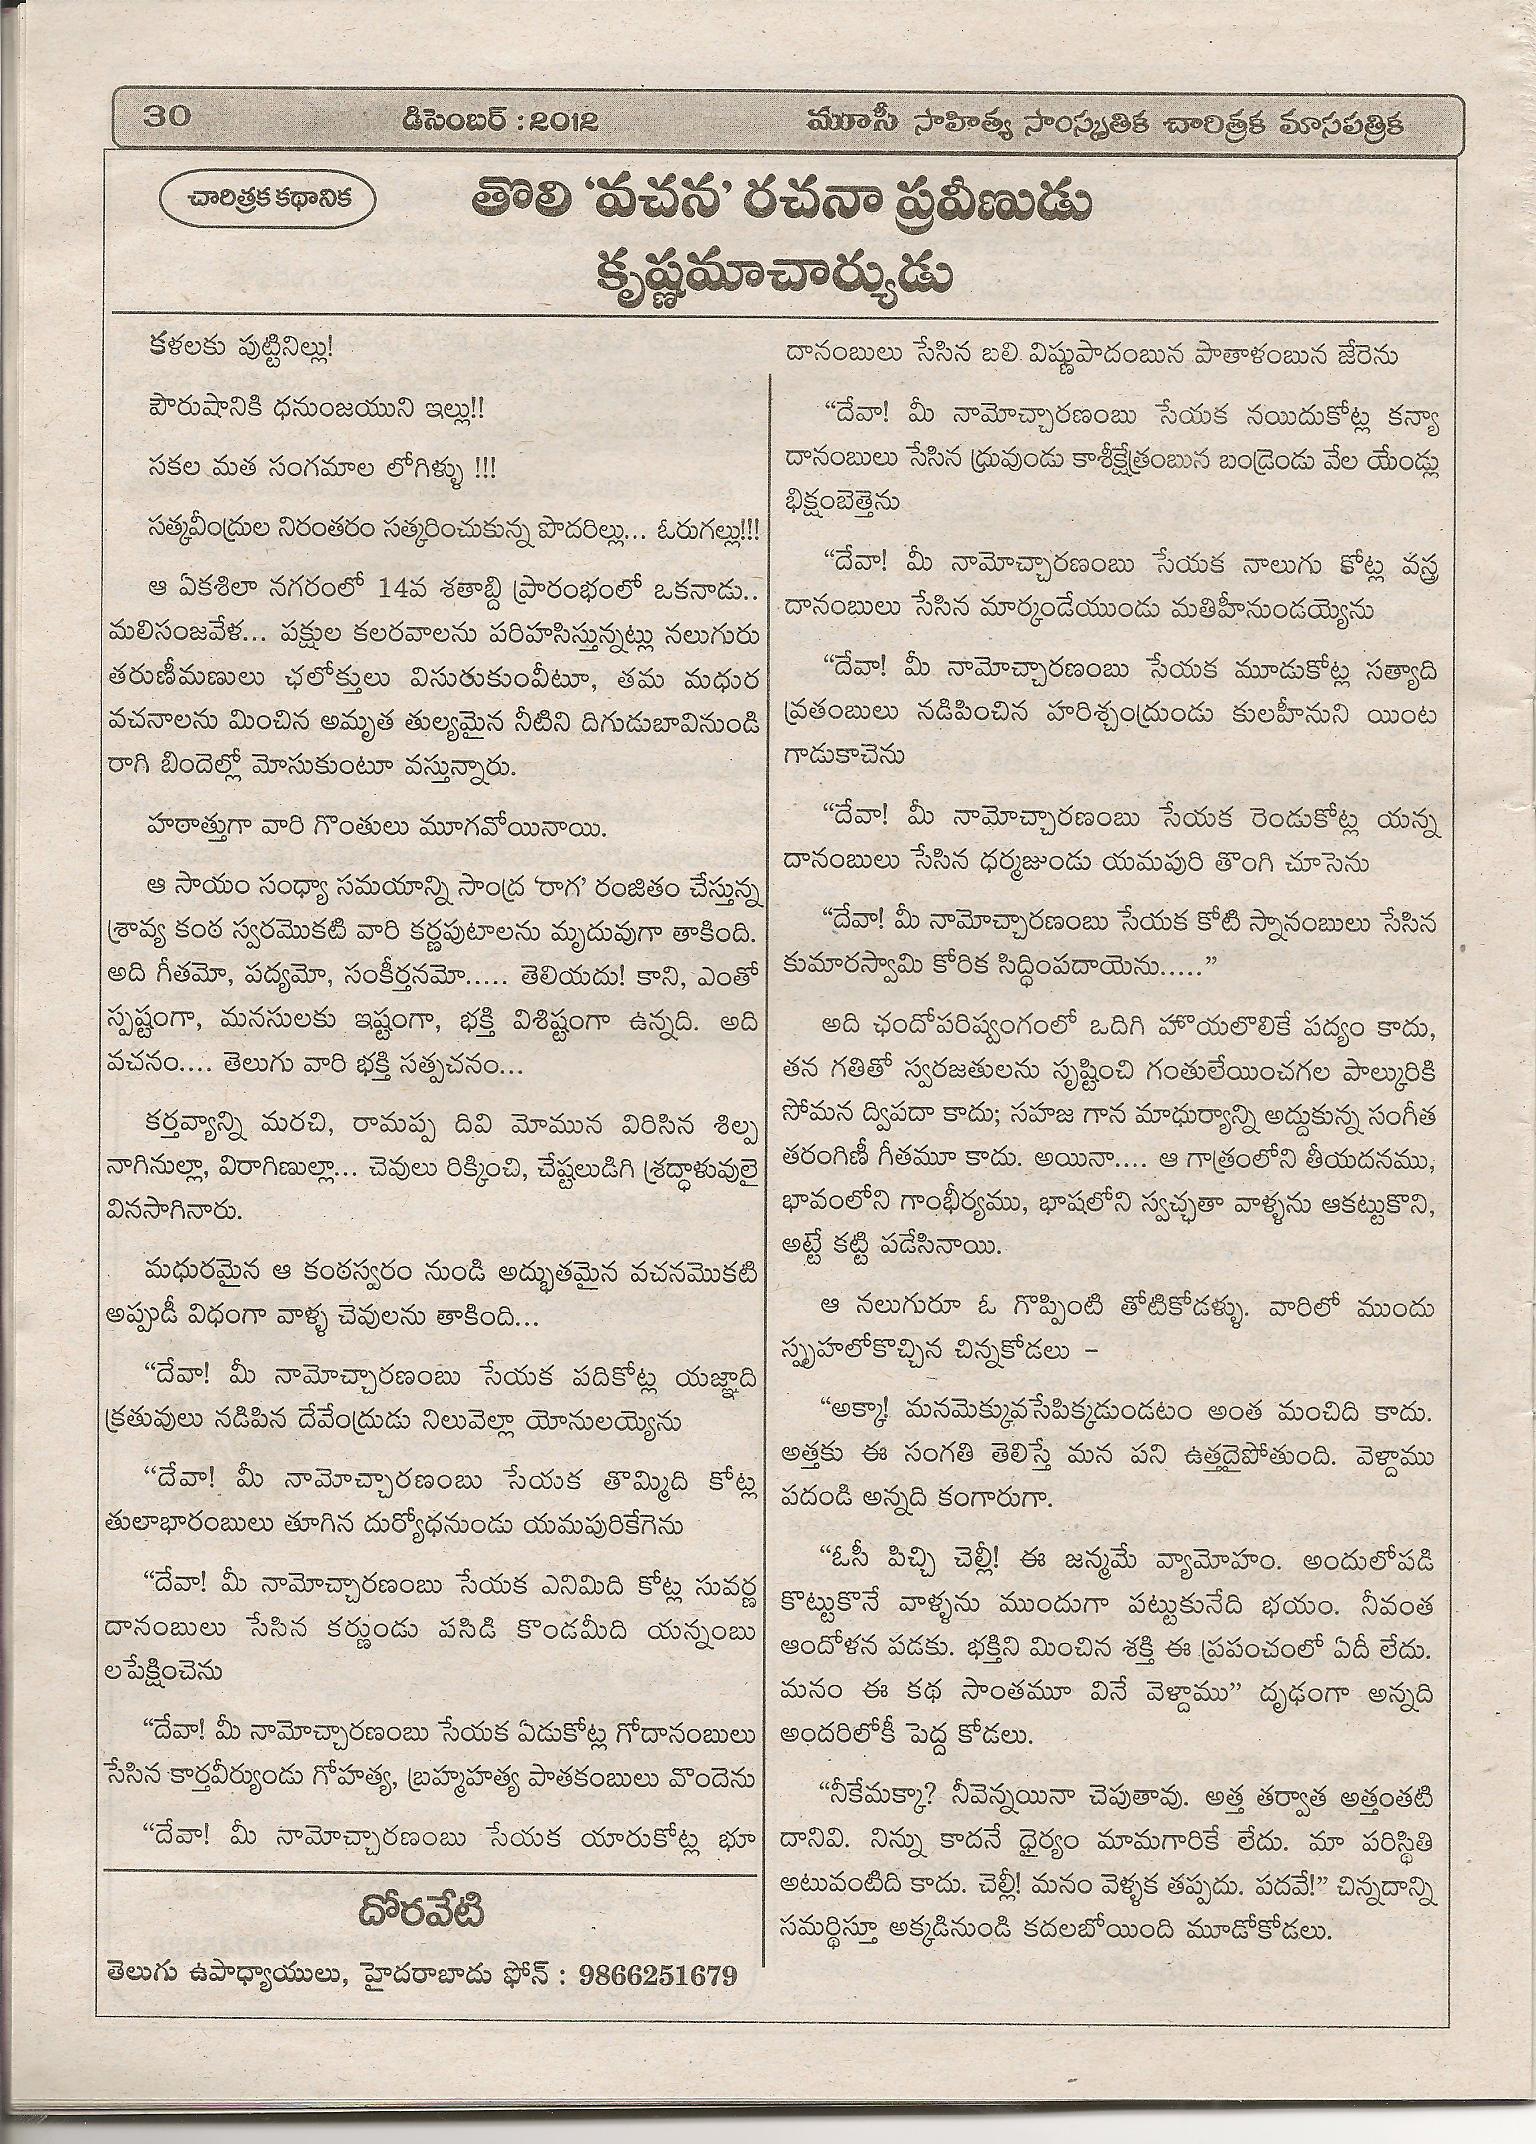 30 డిసెంబర్ : 2012 మూసీ సాహిత్య సాంస్కృతిక చారిత్రక మాసపత్రిక
చారిత్రక కథానిక
తొలి ‘వచన’ రచనా ప్రవీణుడు
కృష్ణమాచార్యుడు
కళలకు పుట్టినిల్లు!
పౌరుషానికి ధనుంజయుని ఇల్లు!!
సకల మత సంగమాల లోగిళ్ళు !!!
సత్కవీంద్రుల నిరంతరం సత్కరించుకున్న పొదరిల్లు... ఓరుగల్లు!!!
ఆ ఏకశిలా నగరంలో 14వ శతాబ్ది ప్రారంభంలో ఒకనాడు..
మలిసంజవేళ... పక్షుల కలరవాలను పరిహసిస్తున్నట్లు నలుగురు
తరుణీమణులు ఛలోక్తులు విసురుకుంవీటూ, తమ మధుర
వచనాలను మించిన అమృత తుల్యమైన నీటిని దిగుడుబావినుండి
రాగి బిందెల్లో మోసుకుంటూ వస్తున్నారు.
హఠాత్తుగా వారి గొంతులు మూగవోయినాయి.
ఆ సాయం సంధ్యా సమయాన్ని సాంద్ర ‘రాగ’ రంజితం చేస్తున్న
శ్రావ్య కంఠ స్వరమొకటి వారి కర్ణపుటాలను మృదువుగా తాకింది.
అది గీతమో, పద్యమో, సంకీర్తనమో..... తెలియదు! కాని, ఎంతో
స్పష్టంగా, మనసులకు ఇష్టంగా, భక్తి విశిష్టంగా ఉన్నది. అది
వచనం.... తెలుగు వారి భక్తి సత్పచనం...
కర్తవ్యాన్ని మరచి, రామప్ప దివి మోమున విరిసిన శిల్ప
నాగినుల్లా, విరాగిణుల్లా... చెవులు రిక్కించి, చేష్టలుడిగి శ్రద్ధాళువులై
వినసాగినారు.
మధురమైన ఆ కంఠస్వరం నుండి అద్భుతమైన వచనమొకటి
అప్పుడీ విధంగా వాళ్ళ చెవులను తాకింది...
“దేవా! మీ నామోచ్చారణంబు సేయక పదికోట్ల యజ్ఞాది
క్రతువులు నడిపిన దేవేంద్రుడు నిలువెల్లా యోనులయ్యెను
“దేవా! మీ నామోచ్చారణంబు సేయక తొమ్మిది కోట్ల
తులాభారంబులు తూగిన దుర్యోధనుండు యమపురికేగెను
“దేవా! మీ నామోచ్చారణంబు సేయక ఎనిమిది కోట్ల సువర్ణ
దానంబులు సేసిన కర్ణుండు పసిడి కొండమీది యన్నంబు
లపేక్షించెను
“దేవా! మీ నామోచ్చారణంబు సేయక ఏడుకోట్ల గోదానంబులు
సేసిన కార్తవీర్యుండు గోహత్య, బ్రహ్మహత్య పాతకంబులు వొందెను
“దేవా! మీ నామోచ్చారణంబు సేయక యారుకోట్ల భూ
దోరవేటి
తెలుగు ఉపాధ్యాయులు, హైదరాబాదు ఫోన్ : 9866251679
దానంబులు సేసిన బలి విష్ణుపాదంబున పాతాళంబున జేరెను
“దేవా! మీ నామోచ్చారణంబు సేయక నయిదుకోట్ల కన్యా
దానంబులు సేసిన ధ్రువుండు కాశీక్షేత్రంబున బండ్రెండు వేల యేండ్లు
భిక్షంబెత్తెను
“దేవా! మీ నామోచ్చారణంబు సేయక నాలుగు కోట్ల వస్త్ర
దానంబులు సేసిన మార్కండేయుండు మతిహీనుండయ్యెను
“దేవా! మీ నామోచ్చారణంబు సేయక మూడుకోట్ల సత్యాది
వ్రతంబులు నడిపించిన హరిశ్చంద్రుండు కులహీనుని యింట
గాడుకాచెను
“దేవా! మీ నామోచ్చారణంబు సేయక రెండుకోట్ల యన్న
దానంబులు సేసిన ధర్మజుండు యమపురి తొంగి చూసెను
“దేవా! మీ నామోచ్చారణంబు సేయక కోటి స్నానంబులు సేసిన
కుమారస్వామి కోరిక సిద్ధింపదాయెను.....”
అది ఛందోపరిష్వంగంలో ఒదిగి హొయలొలికే పద్యం కాదు,
తన గతితో స్వరజతులను సృష్టించి గంతులేయించగల పాల్కురికి
సోమన ద్విపదా కాదు; సహజ గాన మాధుర్యాన్ని అద్దుకున్న సంగీత
తరంగిణీ గీతమూ కాదు. అయినా.... ఆ గాత్రంలోని తీయదనము,
భావంలోని గాంభీర్యము, భాషలోని స్వచ్ఛతా వాళ్ళను ఆకట్టుకొని,
అట్టే కట్టి పడేసినాయి.
ఆ నలుగురూ ఓ గొప్పింటి తోటికోడళ్ళు. వారిలో ముందు
స్పృహలోకొచ్చిన చిన్నకోడలు –
“అక్కా! మనమెక్కువసేపిక్కడుండటం అంత మంచిది కాదు.
అత్తకు ఈ సంగతి తెలిస్తే మన పని ఉత్తదైపోతుంది. వెళ్దాము
పదండి అన్నది కంగారుగా.
“ఓసీ పిచ్చి చెల్లీ! ఈ జన్మమే వ్యామోహం. అందులోపడి
కొట్టుకొనే వాళ్ళను ముందుగా పట్టుకునేది భయం. నీవంత
ఆందోళన పడకు. భక్తిని మించిన శక్తి ఈ ప్రపంచంలో ఏదీ లేదు.
మనం ఈ కథ సాంతమూ వినే వెళ్దాము” దృఢంగా అన్నది
అందరిలోకీ పెద్ద కోడలు.
“నీకేమక్కా? నీవెన్నయినా చెపుతావు. అత్త తర్వాత అత్తంతటి
దానివి. నిన్ను కాదనే ధైర్యం మామగారికే లేదు. మా పరిస్థితి
అటువంటిది కాదు. చెల్లీ! మనం వెళ్ళక తప్పదు. పదవే!” చిన్నదాన్ని
సమర్థిస్తూ అక్కడినుండి కదలబోయింది మూడోకోడలు.